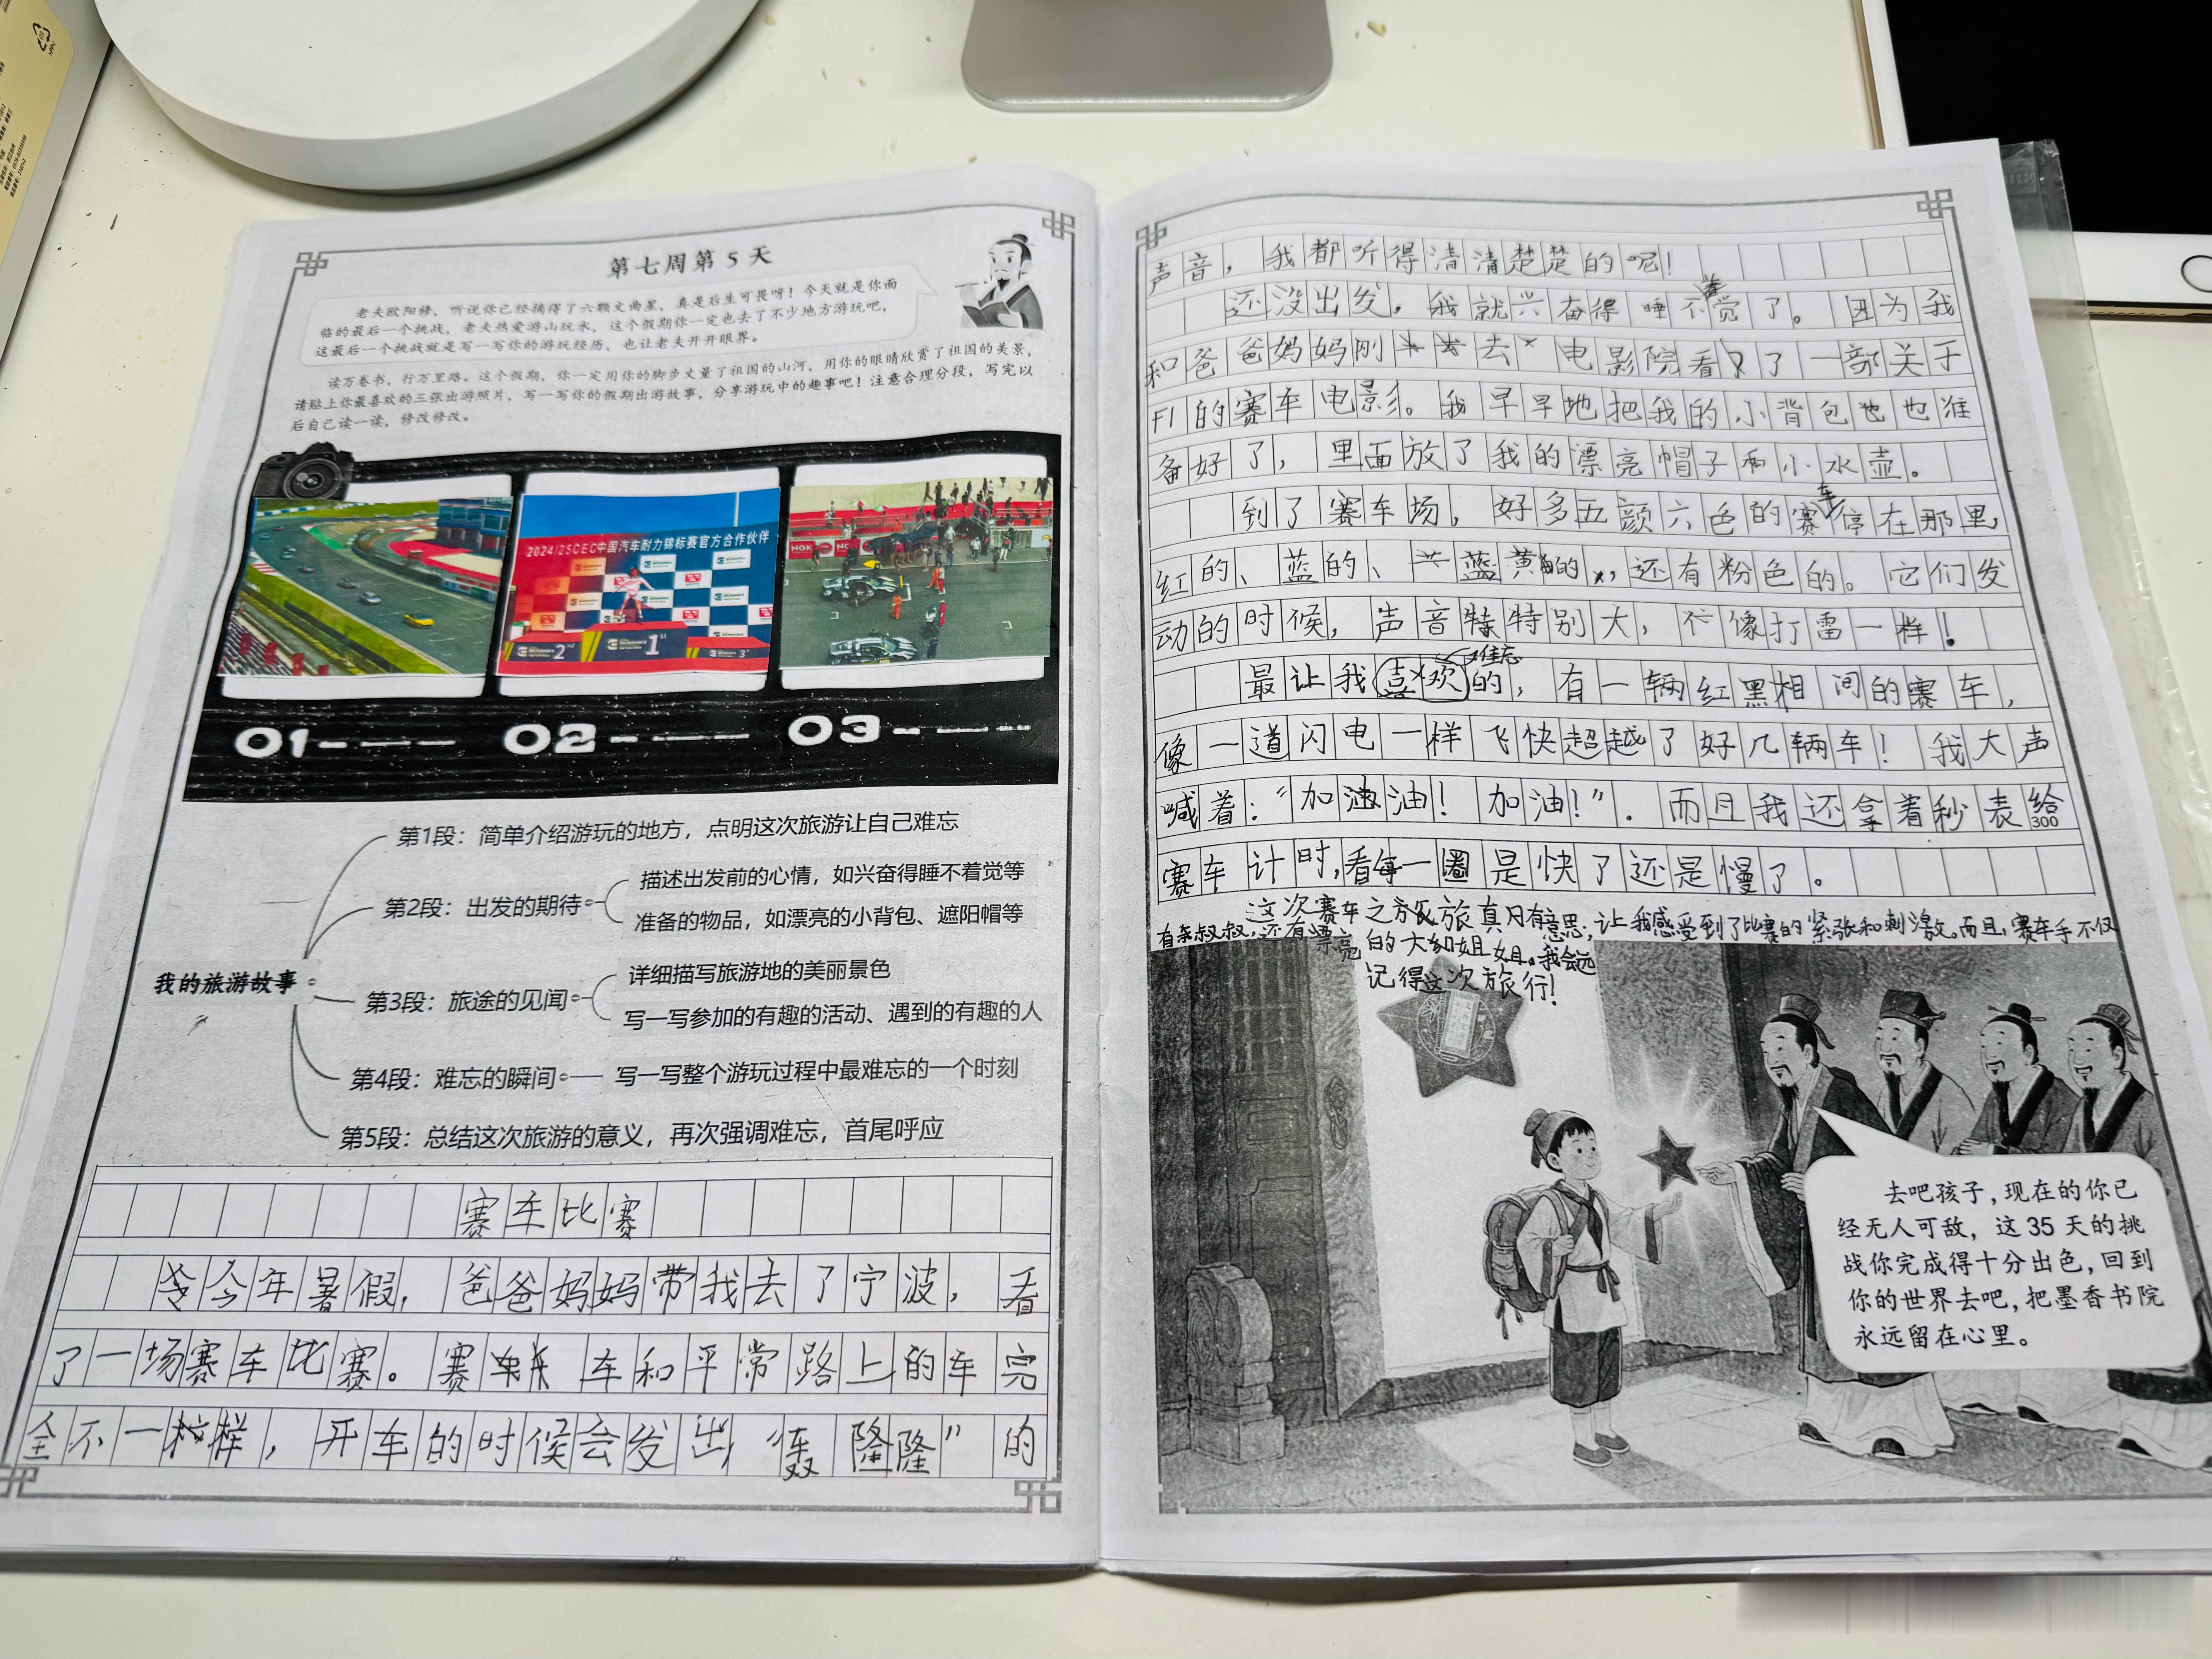 第七周第5天
老夫欧阳修，听说你已经摘得了六颗文曲星，真是后生可畏呀！今天就是你面
临的最后一个挑战，老夫热爱游山玩水，这个假期你一定也去了不少地方游玩吧，
这最后一个挑战就是写一写你的游玩经历，也让老夫开开眼界。
读万卷书，行万里路。这个假期，你一定用你的脚步丈量了祖国的山河，用你的眼睛欣赏了祖国的美景，
请贴上你最喜欢的三张出游照片，写一写你的假期出游故事，分享游玩中的趣事吧！注意合理分段，写完以
后自己读一读，修改修改。
2024/25CEC中国汽车耐力锦标赛官方合作伙伴
2nd
1st
3rd
NGK
NGK
01
02
03
第1段：简单介绍游玩的地方，点明这次旅游让自己难忘
第2段：出发的期待
描述出发前的心情，如兴奋得睡不着觉等
准备的物品，如漂亮的小背包、遮阳帽等
我的旅游故事
第3段：旅途的见闻
详细描写旅游地的美丽景色
写一写参加的有趣的活动、遇到的有趣的人
第4段：难忘的瞬间
写一写整个游玩过程中最难忘的一个时刻
第5段：总结这次旅游的意义，再次强调难忘，首尾呼应
赛车比赛
今年暑假，爸爸妈妈带我去了宁波，看
了一场赛车比赛。赛车和平常路上的车完
全不一样，开车的时候会发出“轰隆隆”的
声音，我都听得清清楚楚的呢！
还没出发，我就兴奋得睡不着觉了。因为我
和爸爸妈妈刚去电影院看了一部关于
F1的赛车电影。我早早地把我的小背包也准
备好了，里面放了我的漂亮帽子和小水壶。
到了赛车场，好多五颜六色的赛车停在那里，
红的、蓝的、黄的，还有粉色的。它们发
动的时候，声音特别大，像打雷一样！
最让我难忘的，有一辆红黑相间的赛车，
像一道闪电一样飞快超越了好几辆车！我大声
喊着：“加油！加油！”。而且我还拿着秒表给
300
赛车计时，看每一圈是快了还是慢了。
这次赛车之旅真有意思，让我感受到了比赛的紧张和刺激。而且，赛车手不仅
有叔叔，还有漂亮的大姐姐。我会
记得这次旅行！
去吧孩子，现在的你已
经无人可敌，这35天的挑
战你完成得十分出色，回到
你的世界去吧，把墨香书院
永远留在心里。